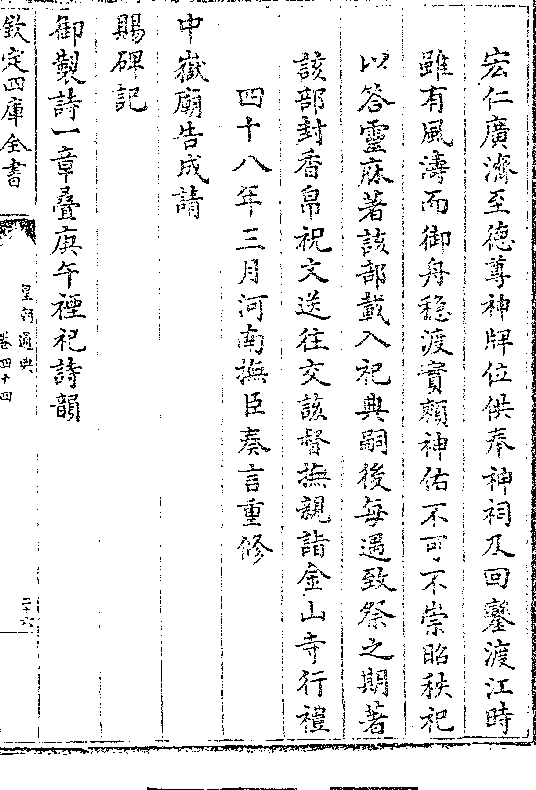 宏仁廣濟至德尊神牌位供奉神祠及回鑾渡江時
雖有風濤而御舟穏渡實頼神佑不可不崇昭秩祀
以答靈庥著該部載入祀典嗣後每遇致祭之期著
該部封香帛祝文送往交該督撫親詣金山寺行禮
四十八年三月河南撫臣奏言重修
中嶽廟告成請
賜碑記
御製詩一章疊庚午禋祀詩韻
欽定四庫全書
皇朝通典
卷四十四
二十六